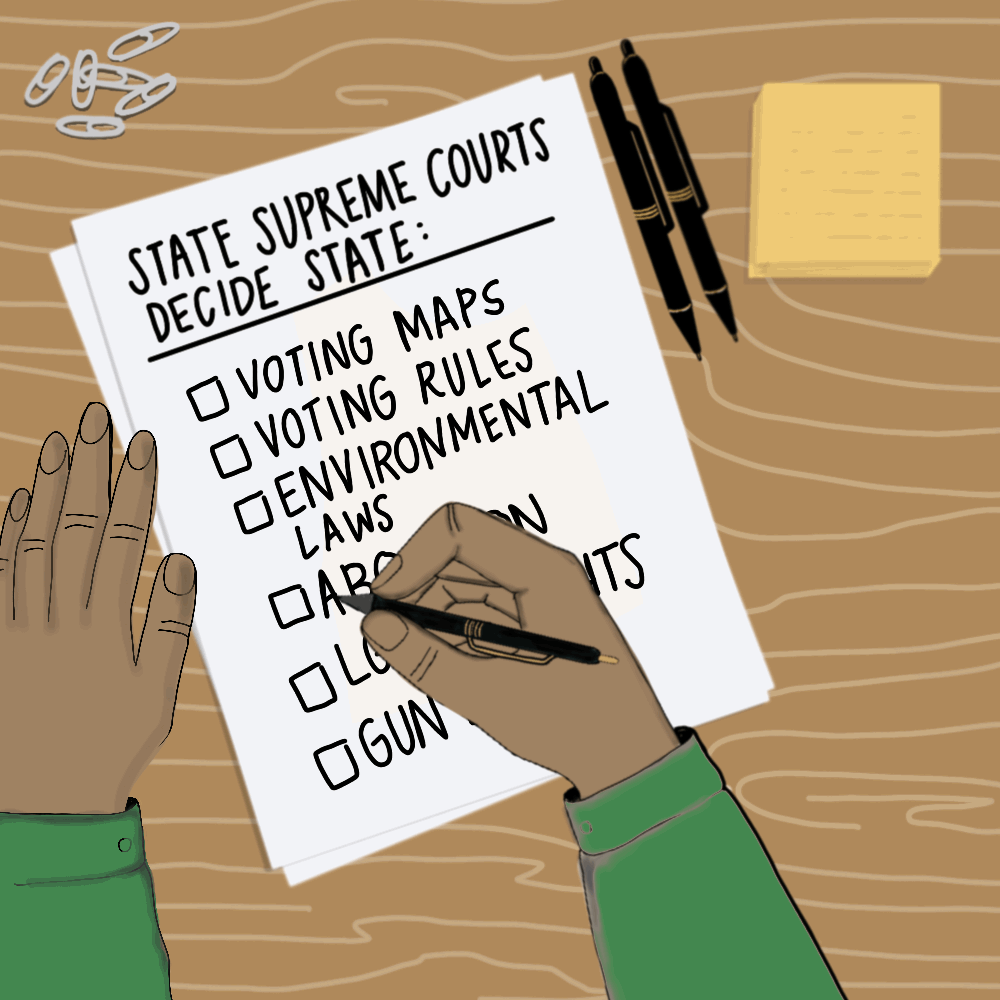 STATE SUPREME COURTS
DECIDE STATE:
VOTING MAPS
VOTING RULES
ENVIRONMENTAL
LAWS
GUN